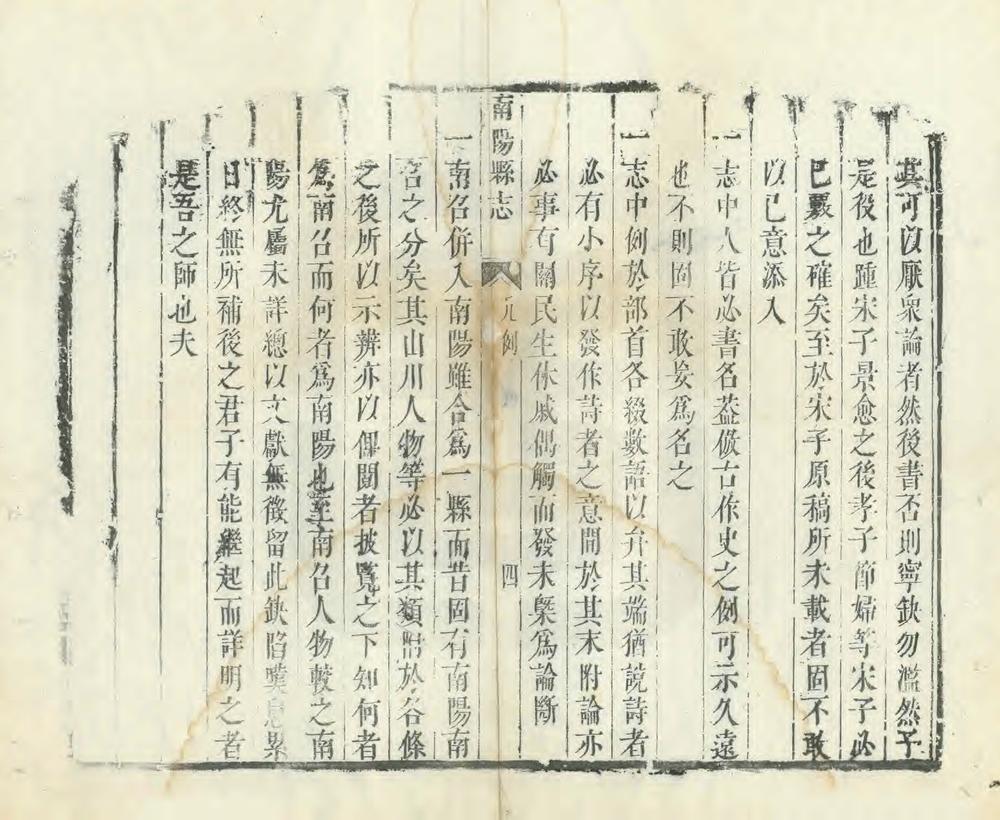 其可以厭衆論者然後書否則寧缺勿濫然予
是役也踵宋子景愈之後孝子節婦等宋子必
已覈之確矣至於宋子原稿所未載者固不敢
以已意添入
一志中人皆必書名葢倣古作史之例可示久遠
也不則固不敢妄爲名之
一志中例於部首各綴數語以弁其端猶說詩者
必有小序以發作詩者之意間於其末附論亦
必事有關民生休戚偶觸而發未槩爲論斷
南陽縣志 凡例 四
一南召併入南陽雖合爲一縣而昔固有南陽南
召之分矣其山川人物等必以其類附於各條
之後所以示辨亦以俾閱者披覽之下知何者
爲南召而何者爲南陽也至南召人物較之南
陽尤屬未詳總以文獻無徵留此缺陷嘆息累
日終無所補後之君子有能繼起而詳明之者
是吾之師也夫